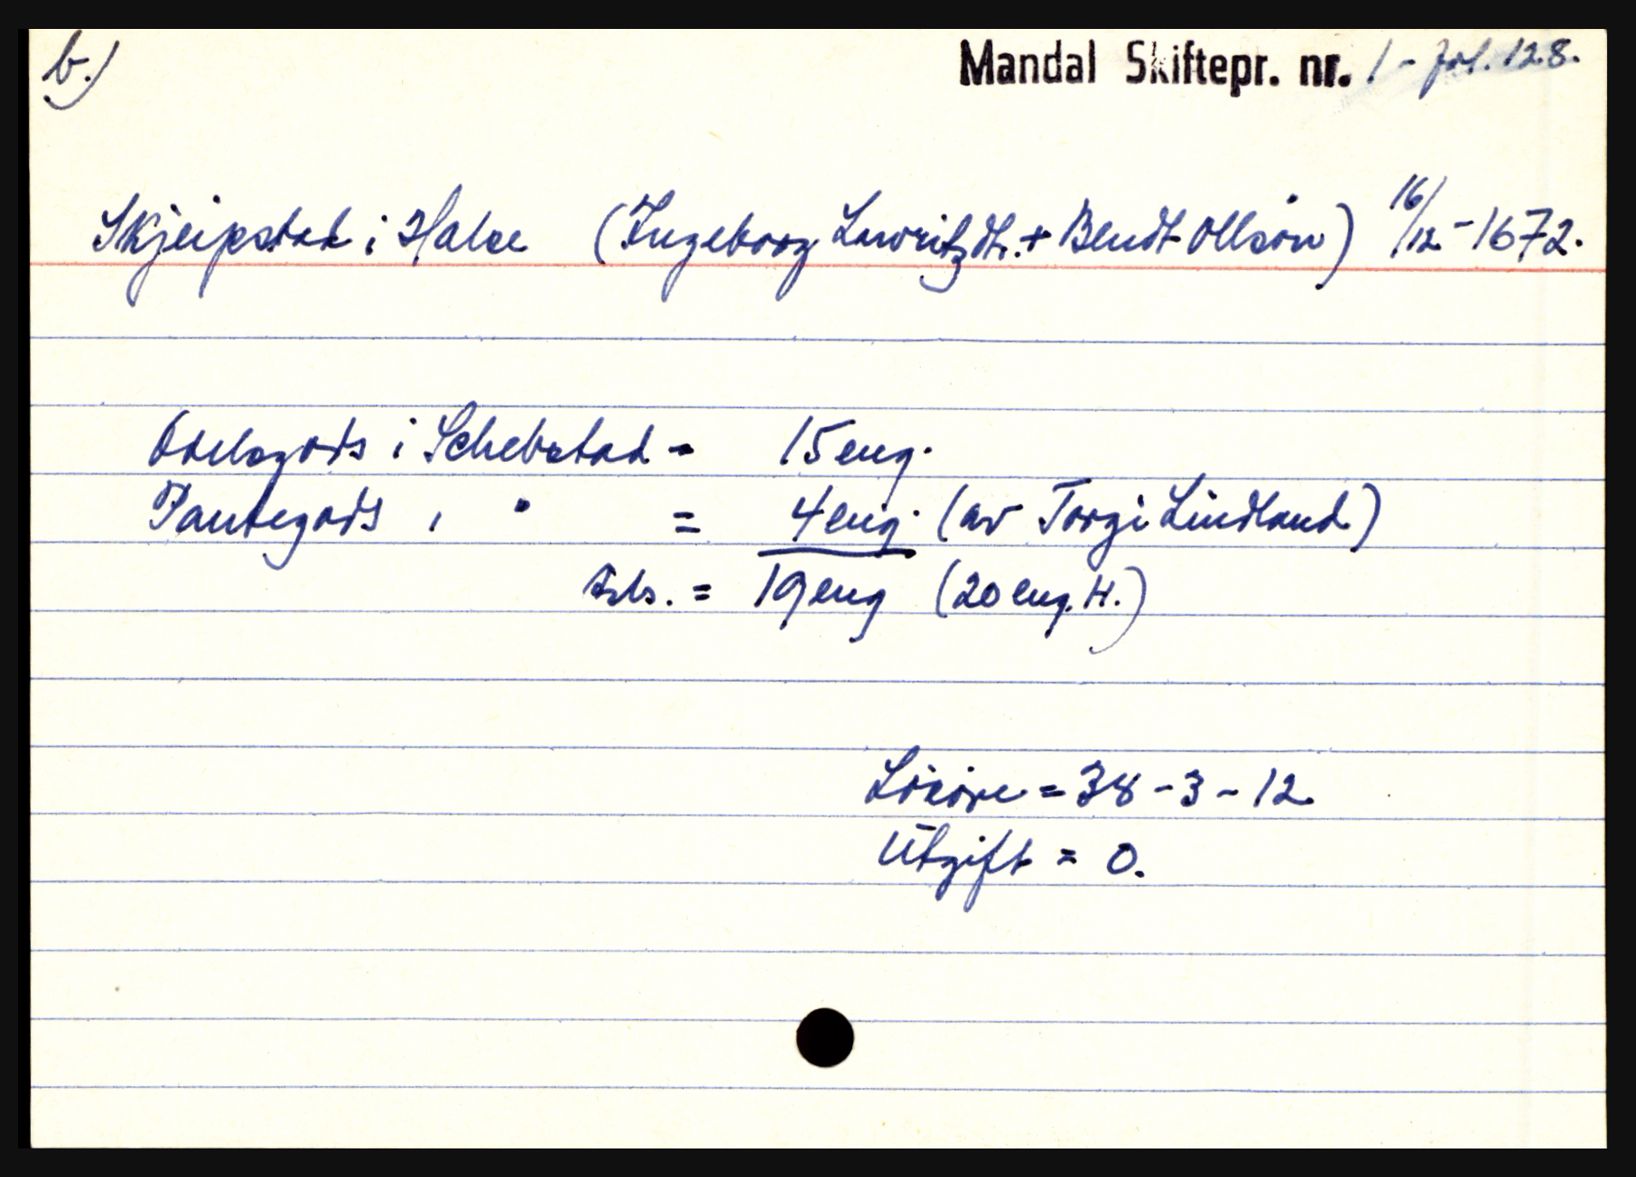 b.)
Mandal Skiftepr. nr. 1 - fol. 128.
Skjeipstad i Halse (Ingeborg Lawritzdtr. + Bendt Ollsøn) 16/12 - 1672.
Odelsgods i Schebstad = 15 eng.
Pantegods i " = 4 eng. (av Torgi Lindland)
Tils. = 19 eng (20 eng. H.)
Løsøre = 38 - 3 - 12.
Utgift = 0.